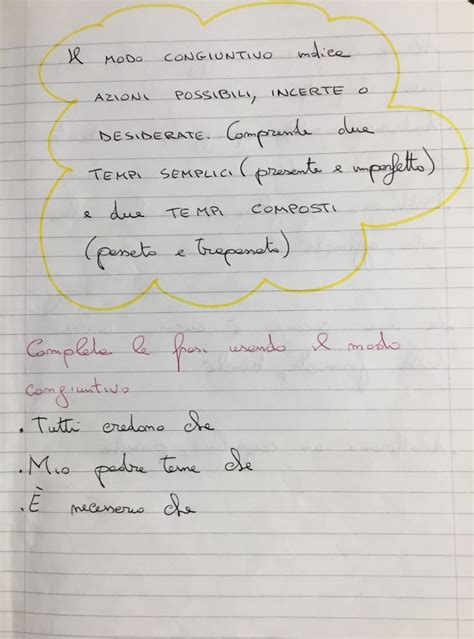 Il MODO CONGIUNTIVO indica
AZIONI POSSIBILI, INCERTE O
DESIDERATE. Comprende due
TEMPI SEMPLICI (presente e imperfetto)
e due TEMPI COMPOSTI
(passato e trapassato)
Completa le frasi usando il modo
congiuntivo
. Tutti credono che
. Mio padre teme che
. È necessario che